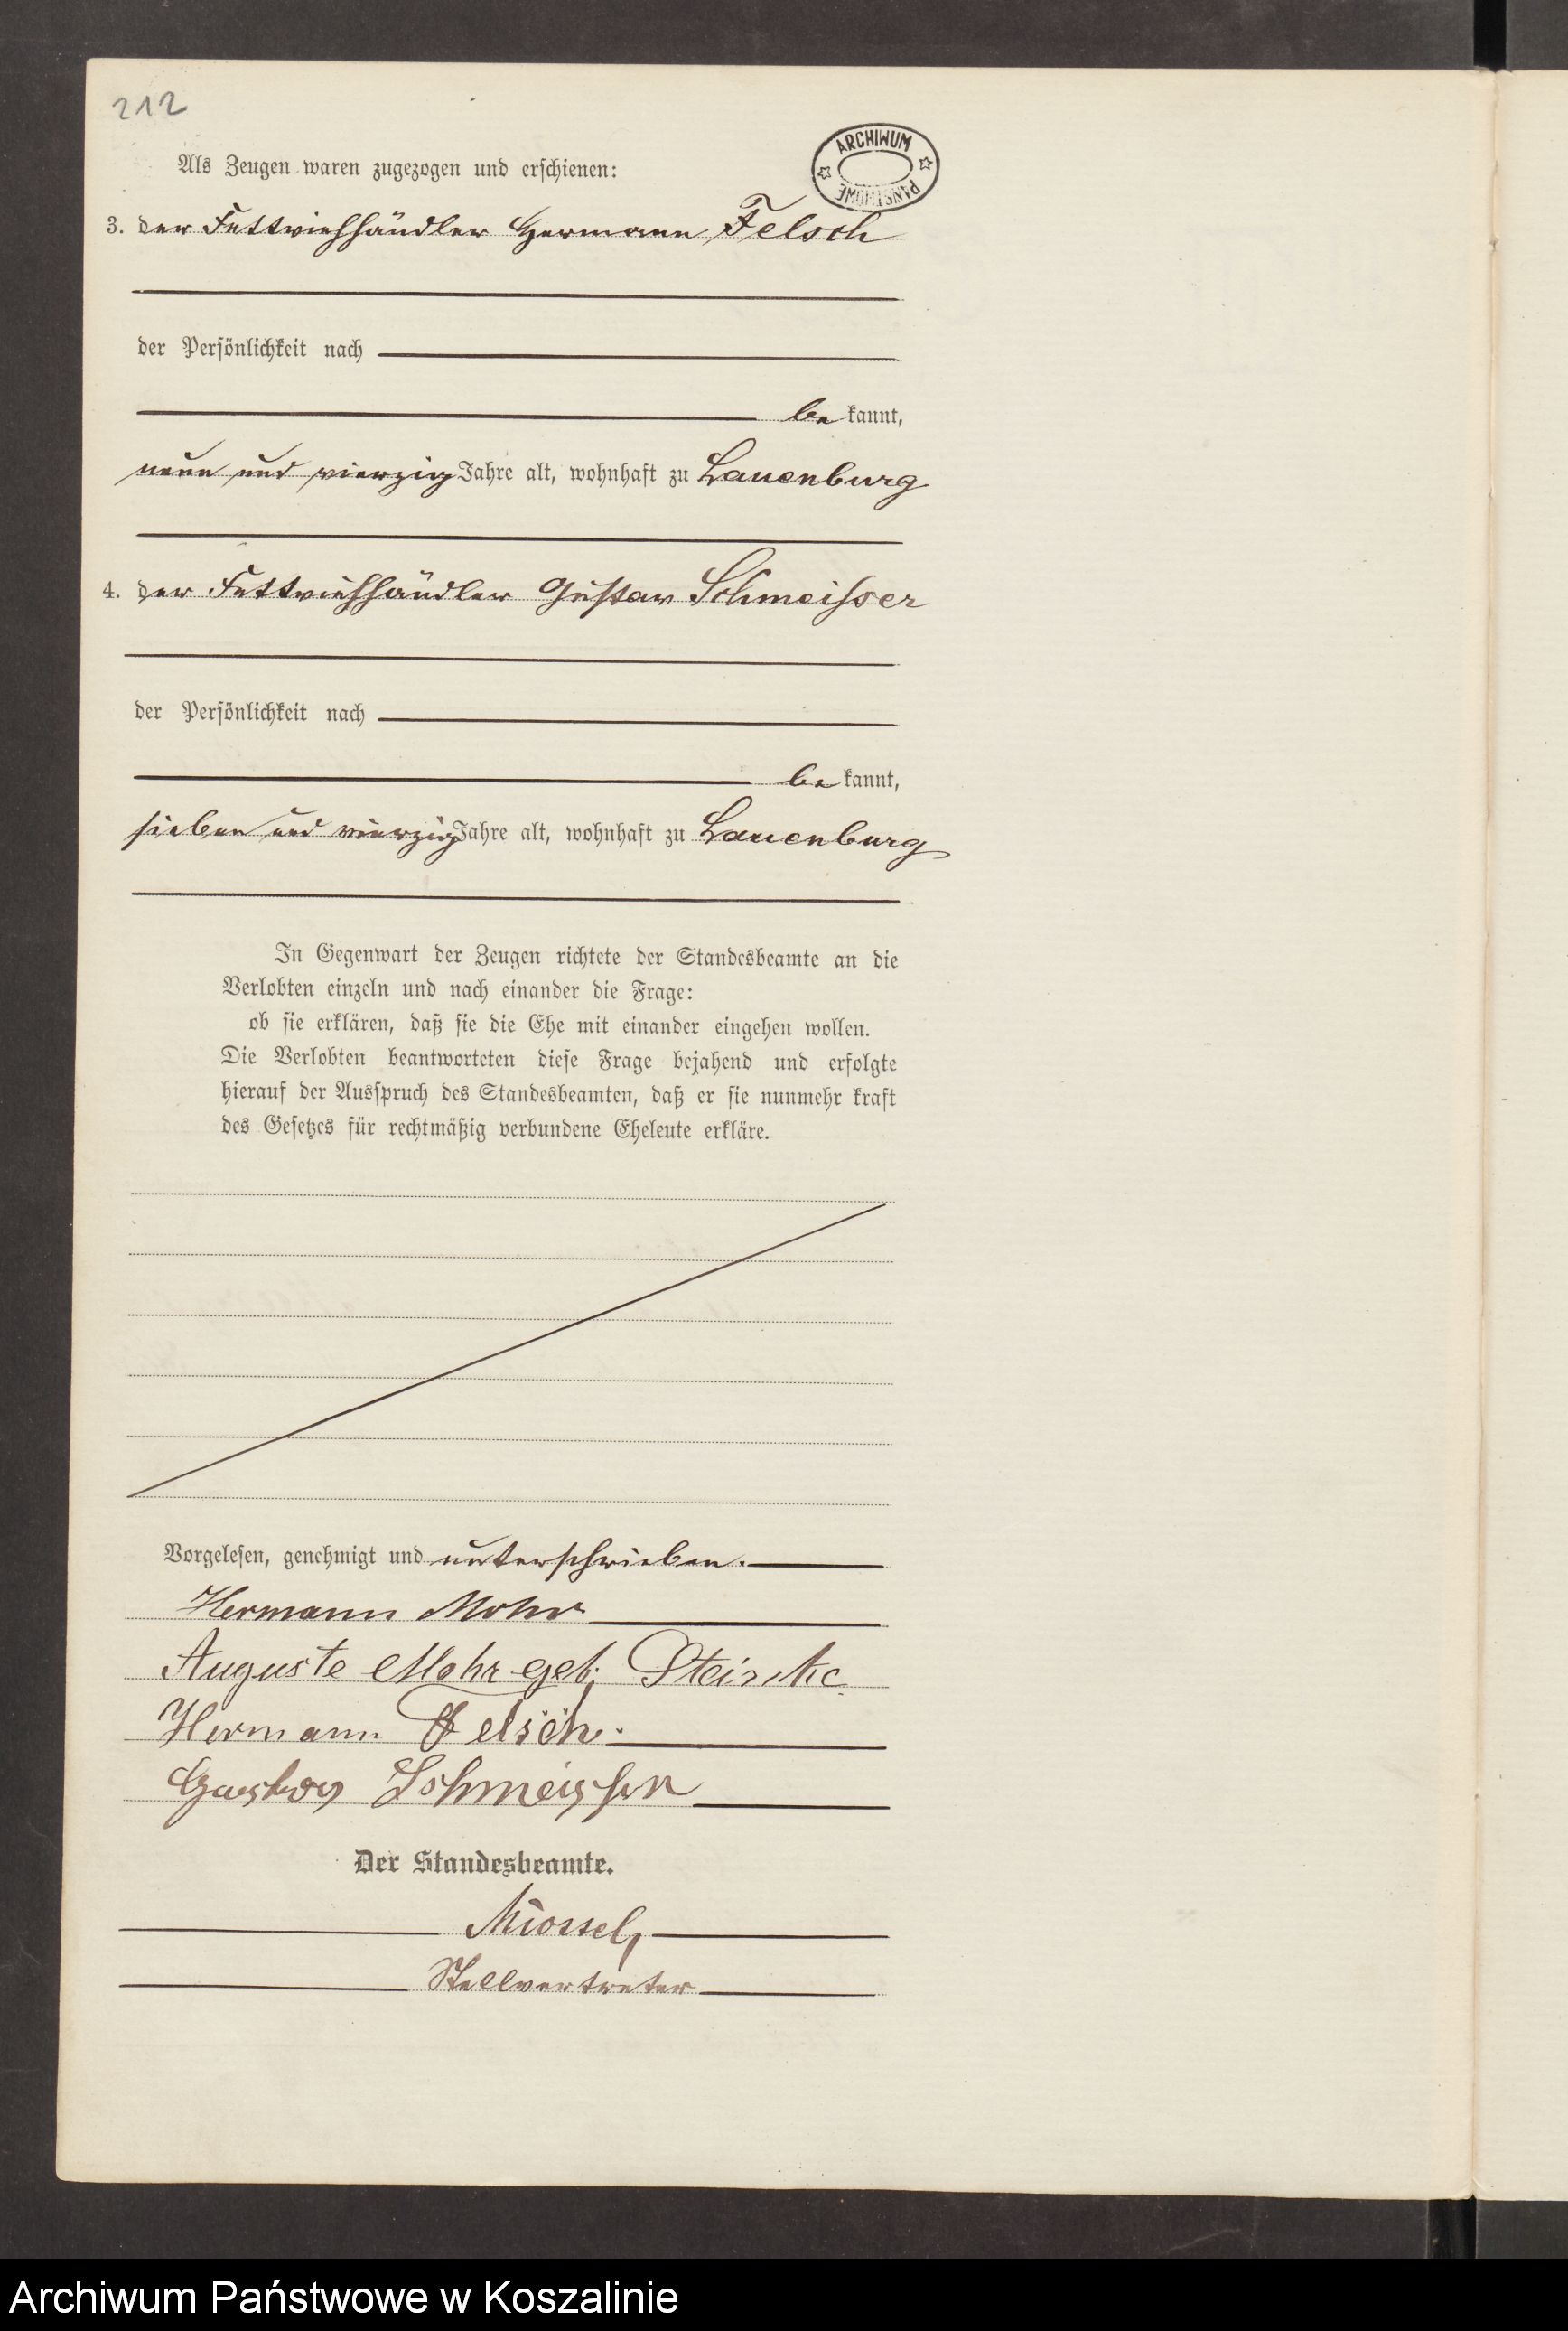 212
ARCHIWUM
PAŃSTWOWE
Als Zeugen waren zugezogen und erschienen:
3. der Fettviehhändler Hermann Felsch
der Persönlichkeit nach
be kannt,
neun und vierzig Jahre alt, wohnhaft zu Lauenburg
4. der Fettviehhändler Gustav Schmeisser
der Persönlichkeit nach
be kannt,
sieben und vierzig Jahre alt, wohnhaft zu Lauenburg
In Gegenwart der Zeugen richtete der Standesbeamte an die
Verlobten einzeln und nach einander die Frage:
ob sie erklären, daß sie die Ehe mit einander eingehen wollen.
Die Verlobten beantworteten diese Frage bejahend und erfolgte
hierauf der Ausspruch des Standesbeamten, daß er sie nunmehr kraft
des Gesetzes für rechtmäßig verbundene Eheleute erkläre.
Vorgelesen, genehmigt und unterschrieben.
Hermann Mohr
Auguste Mohr geb.
Hermann Felsch.
Gustav Schmeisser
Der Standesbeamte.
Stellvertreter
Archiwum Państwowe w Koszalinie